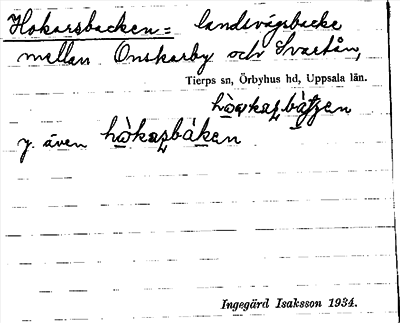 Hokarsbacken = landsvägsbacke
mellan Onskarby och Svartån,
Tierps sn, Örbyhus hd, Uppsala län.
även
Ingegärd Isaksson 1934.